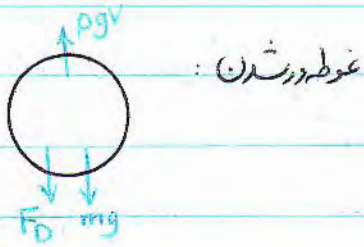 ρgV
غوطه ور شدن :
F_D mg